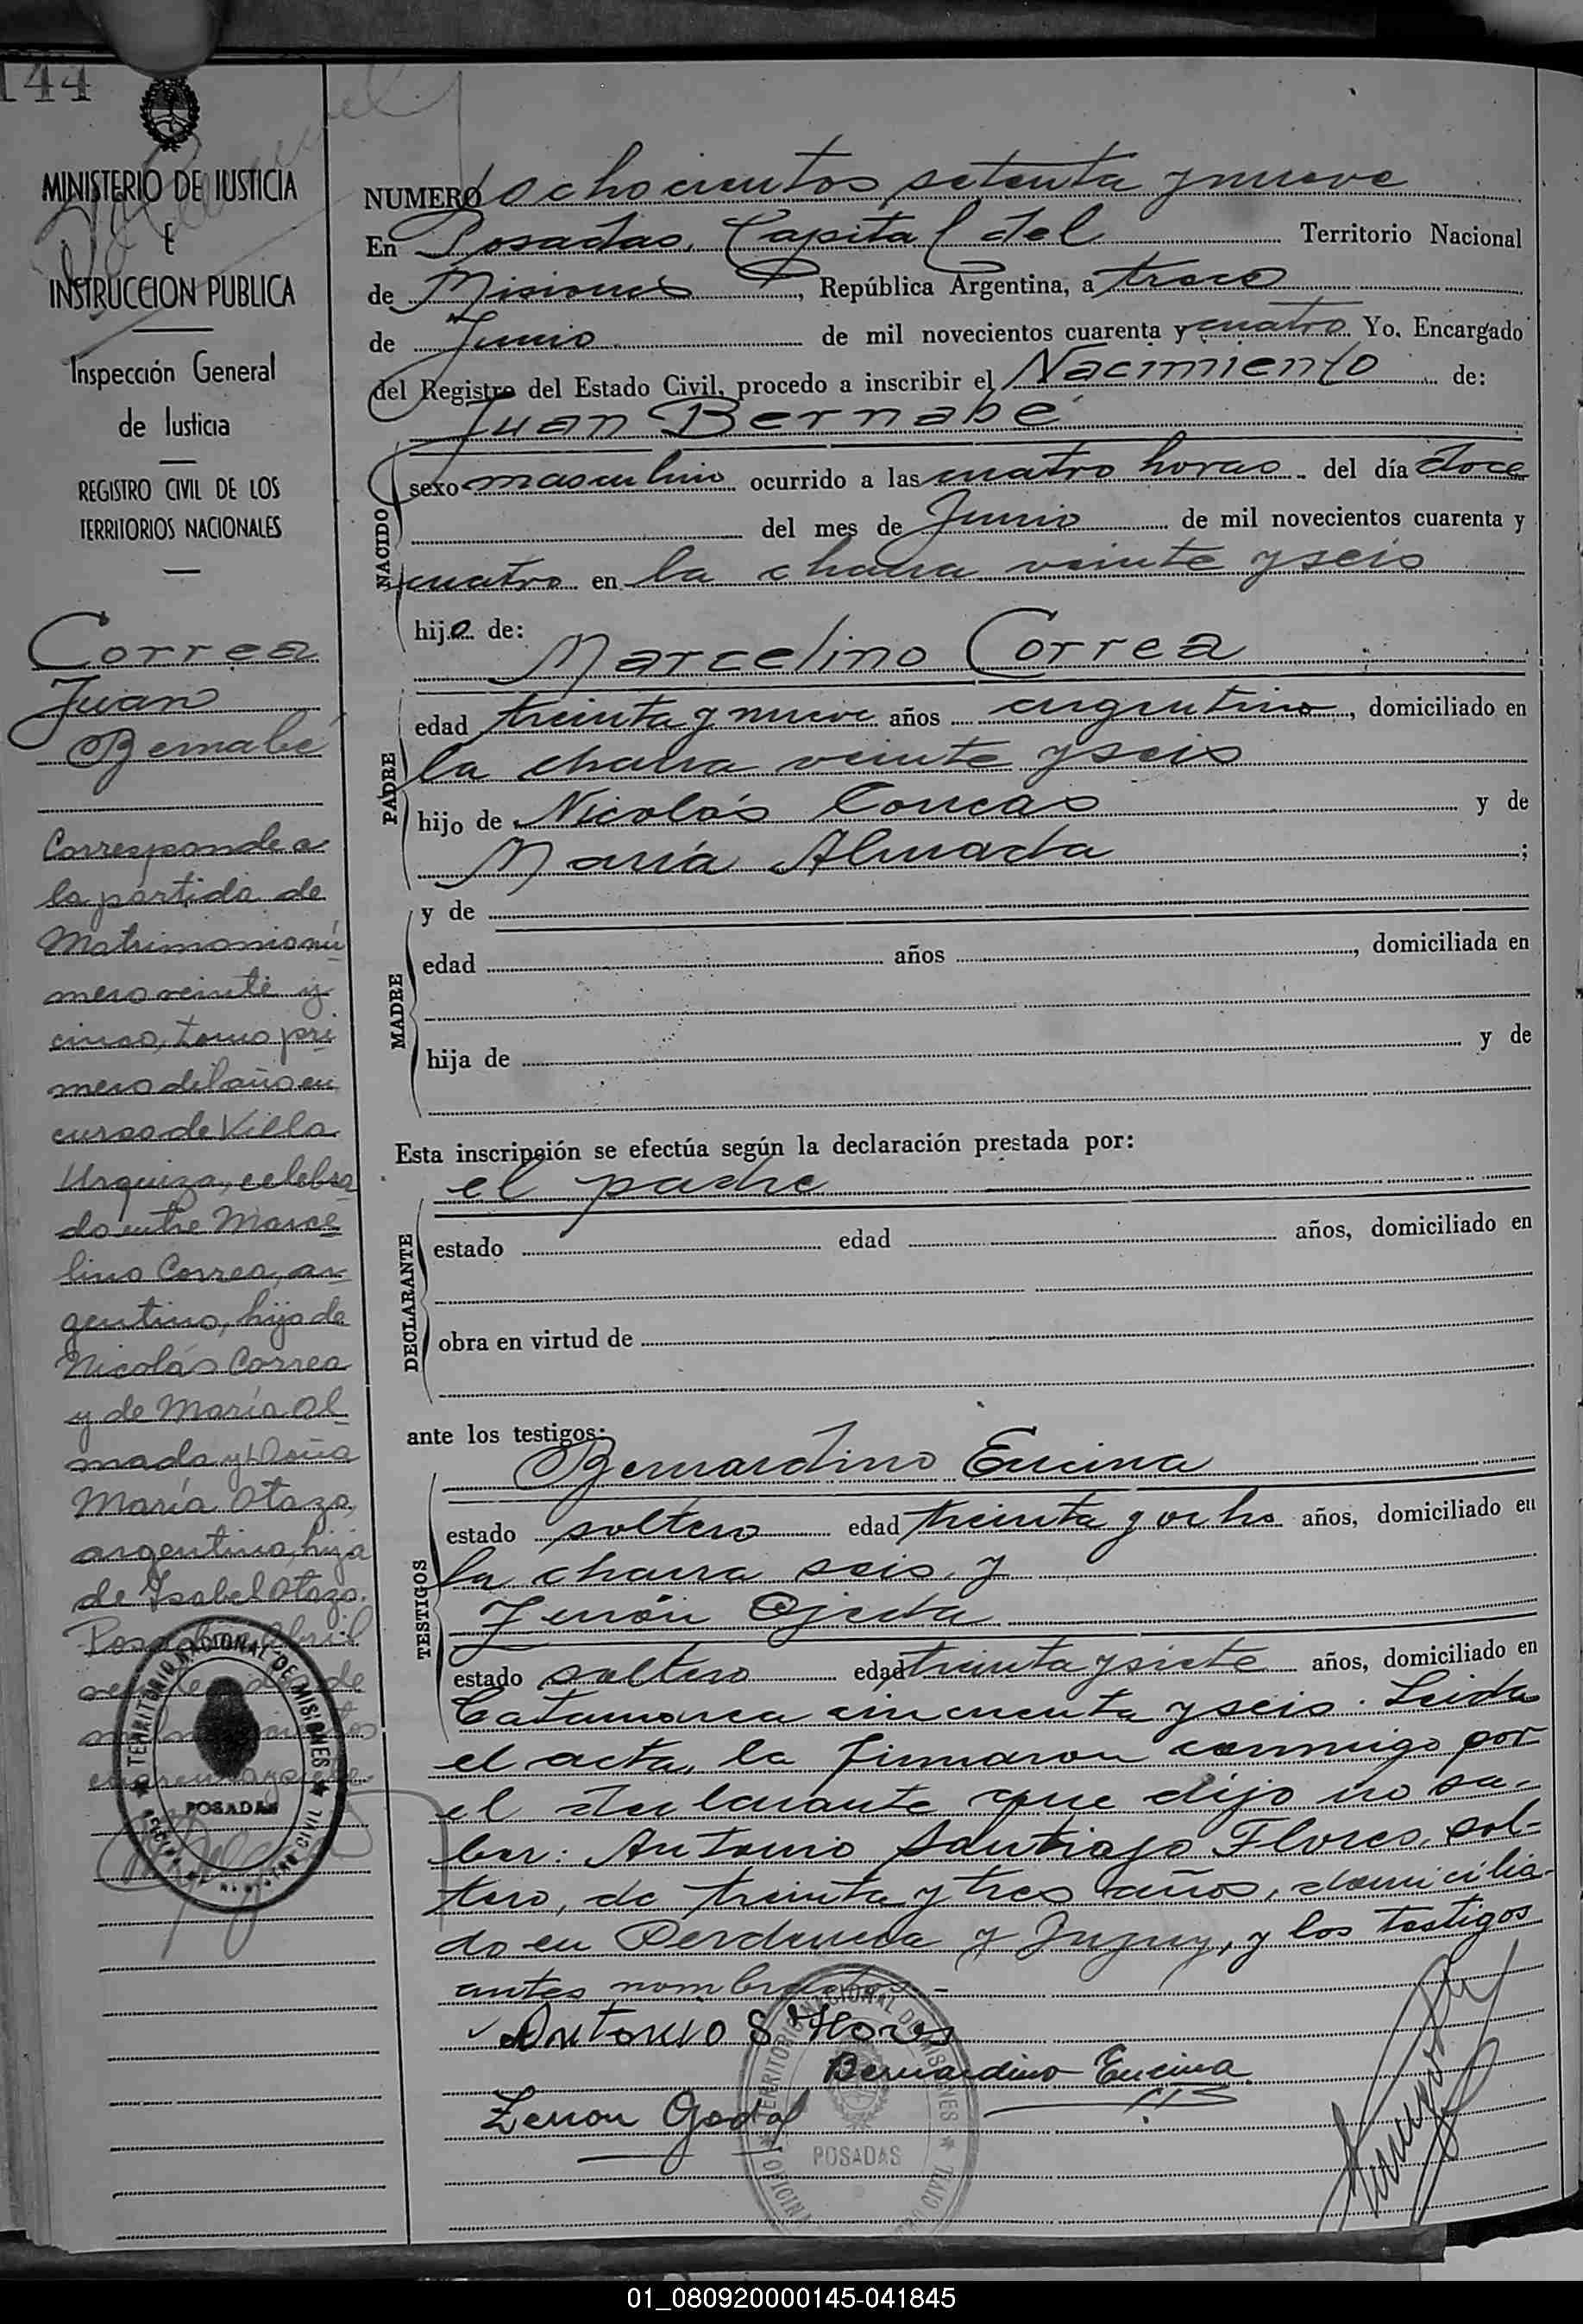 144
MINISTERIO DE JUSTICIA
E
INSTRUCCION PUBLICA
Inspección General
de Justicia
REGISTRO CIVIL DE LOS
TERRITORIOS NACIONALES
Correa
Juan
Bernabé
Corresponde a
la partida de
Matrimonio nú
mero veinte y
cinco, tomo pri
mero del año en
curso de Villa
Urquiza, celebra
do entre Marce
lino Correa, ar
gentino, hijo de
Nicolás Correa
y de María Al
mada y Doña
María Otazo,
argentina, hija
de Isabel Otazo.
Posadas, Abril
de
TERRITORIO NACIONAL DE MISIONES
POSADAS
NUMERO ochocientos setenta y nueve
En Posadas, Capital del Territorio Nacional
de Misiones, República Argentina, a trece
de Junio de mil novecientos cuarenta y cuatro Yo, Encargado
del Registro del Estado Civil, procedo a inscribir el Nacimiento de:
Juan Bernabé
NACIDO
sexo masculino ocurrido a las cuatro horas del día doce
del mes de Junio de mil novecientos cuarenta y
cuatro en la chacra veinte y seis
hijo de:
Marcelino Correa
PADRE
edad treinta y nueve años argentino, domiciliado en
la chacra veinte y seis
hijo de Nicolás Correas y de
María Almada;
MADRE
y de
edad años, domiciliada en
hija de y de
Esta inscripción se efectúa según la declaración prestada por:
el padre
DECLARANTE
estado edad años, domiciliado en
obra en virtud de
ante los testigos:
Bernardino Encina
TESTIGOS
estado soltero edad treinta y ocho años, domiciliado en
la chacra seis, y
Zenón Ojeda
estado soltero edad treinta y siete años, domiciliado en
Catamarca cincuenta y seis. Leida
el acta, la firmaron conmigo por
el declarante que dijo no sa-
ber: Antonio Santiago Flores, sol-
tero, de treinta y tres años, domicilia-
do en y Jujuy, y los testigos
antes nombrados.-
Antonio S Flores
Bernardino Encina
Zenon
TERRITORIO NACIONAL DE MISIONES
POSADAS
OFICINA REGISTRO CIVIL
01_080920000145-041845